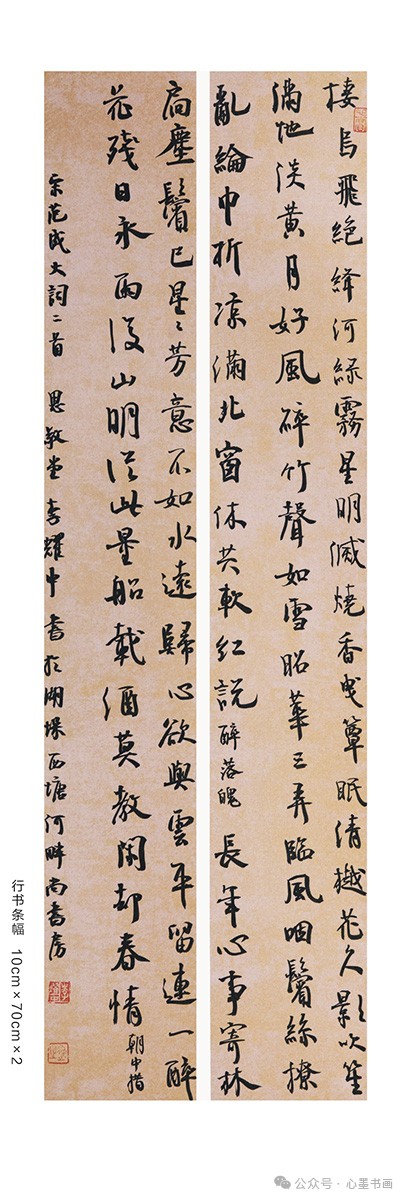 棲烏飛絕絳河緑霧星明滅燒香曳簟眠清樾花久影吹笙
滿地淡黄月好風碎竹聲如雪昭華三弄臨風咽鬢絲撩
亂綸巾折凉滿北窗休共軟红説醉落魄長年心事寄林
扃塵鬢已星々芳意不如水遠歸心欲與雲平留連一醉
花殘日永雨後山明從此量船載酒莫教閑却春情朝中措
宋范成大詞二首 敏堂李耀中書於湖西塘河畔尚書房
行书条幅 10cm×70cm×2
公众号·心墨书画